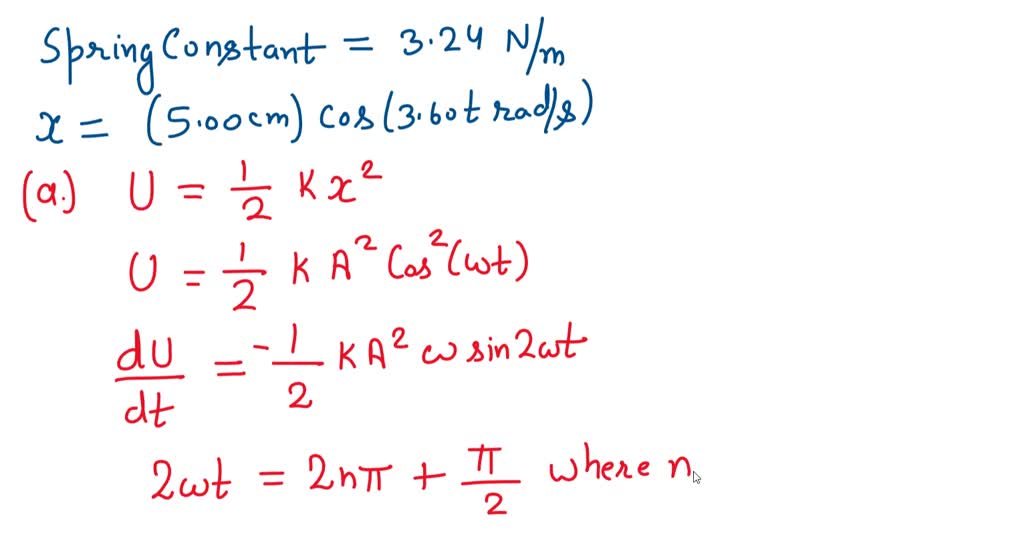 Spring Constant = 3.24 N/m
x = (5.00cm) cos(3.60t rad/s)
(a.) U = 1/2 Kx²
U = 1/2 K A² Cos²(ωt)
dU/dt = -1/2 KA² ω sin2ωt
2ωt = 2nπ + π/2 where n